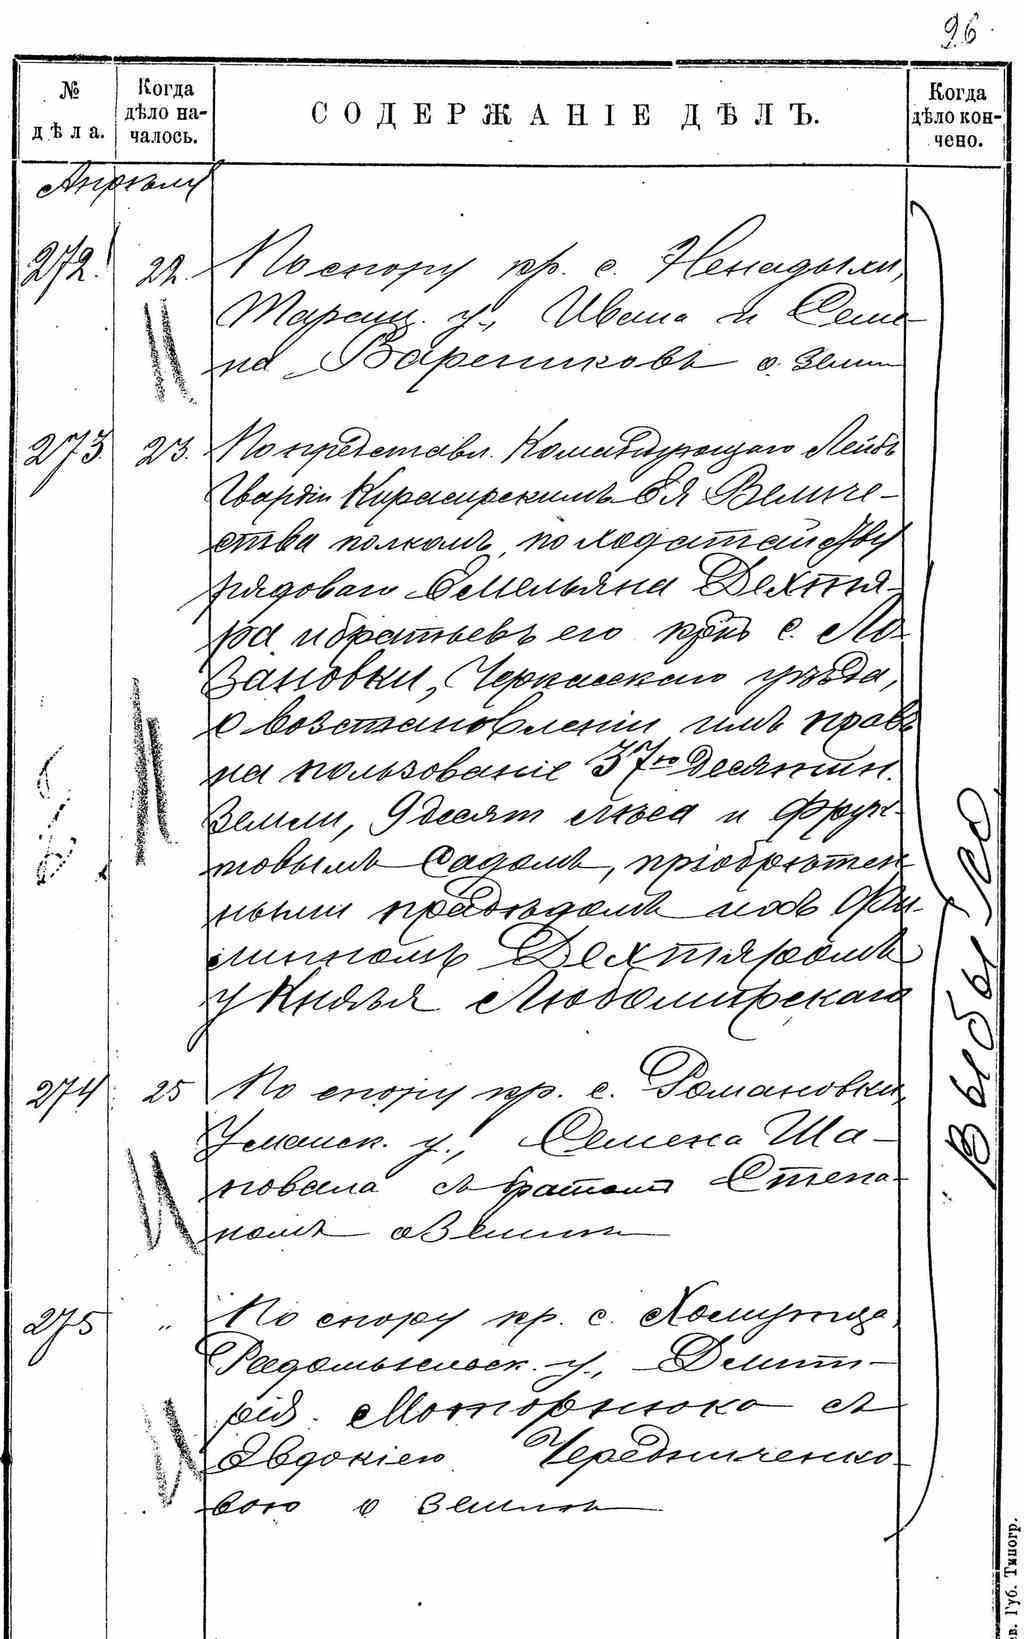 96
№ дѣла.
Когда дѣло началось.
СОДЕРЖАНІЕ ДѢЛЪ.
Когда дѣло кончено.
Апрѣля
272. 22. По спору кр. с. Ненадыхи,
Таращ. у., Ивана и Семе-
на Варениковъ о земли
273 23. По представл. Командующаго Лейбъ
Гвардіи Кирасирскимъ Ея Величе-
ства полкомъ, по ходатайству
рядоваго Емельяна Дехтя-
ра и братьевъ его кр. с. Ло-
зановки, Черкасскаго уѣзда,
о возстановленіи имъ правъ
на пользованіе 37ю десятин.
земли, 9 десят лѣса и фрук-
товымъ садомъ, пріобрѣтен-
ными прадѣдомъ ихъ Фи-
липпомъ Дехтяромъ
у Князя Любомирскаго
274 25 По спору кр. с. Романовки,
Уманск. у., Семена Ша-
повала съ братомъ Степа-
номъ о земли
275 " По спору кр. с. Хомутца,
Радомысльск. у., Дмит-
рія Моторнюка съ
Евдокіею Чередниченко-
вою о земли
Выбыло
Губ. Типогр.